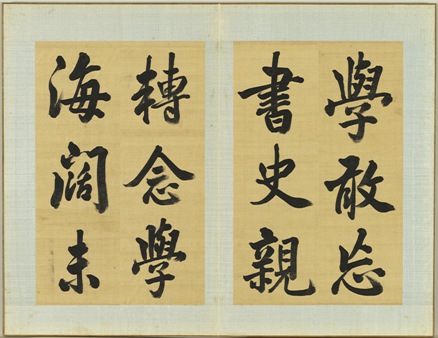 學敢忘
書史親
轉念學
海闊未